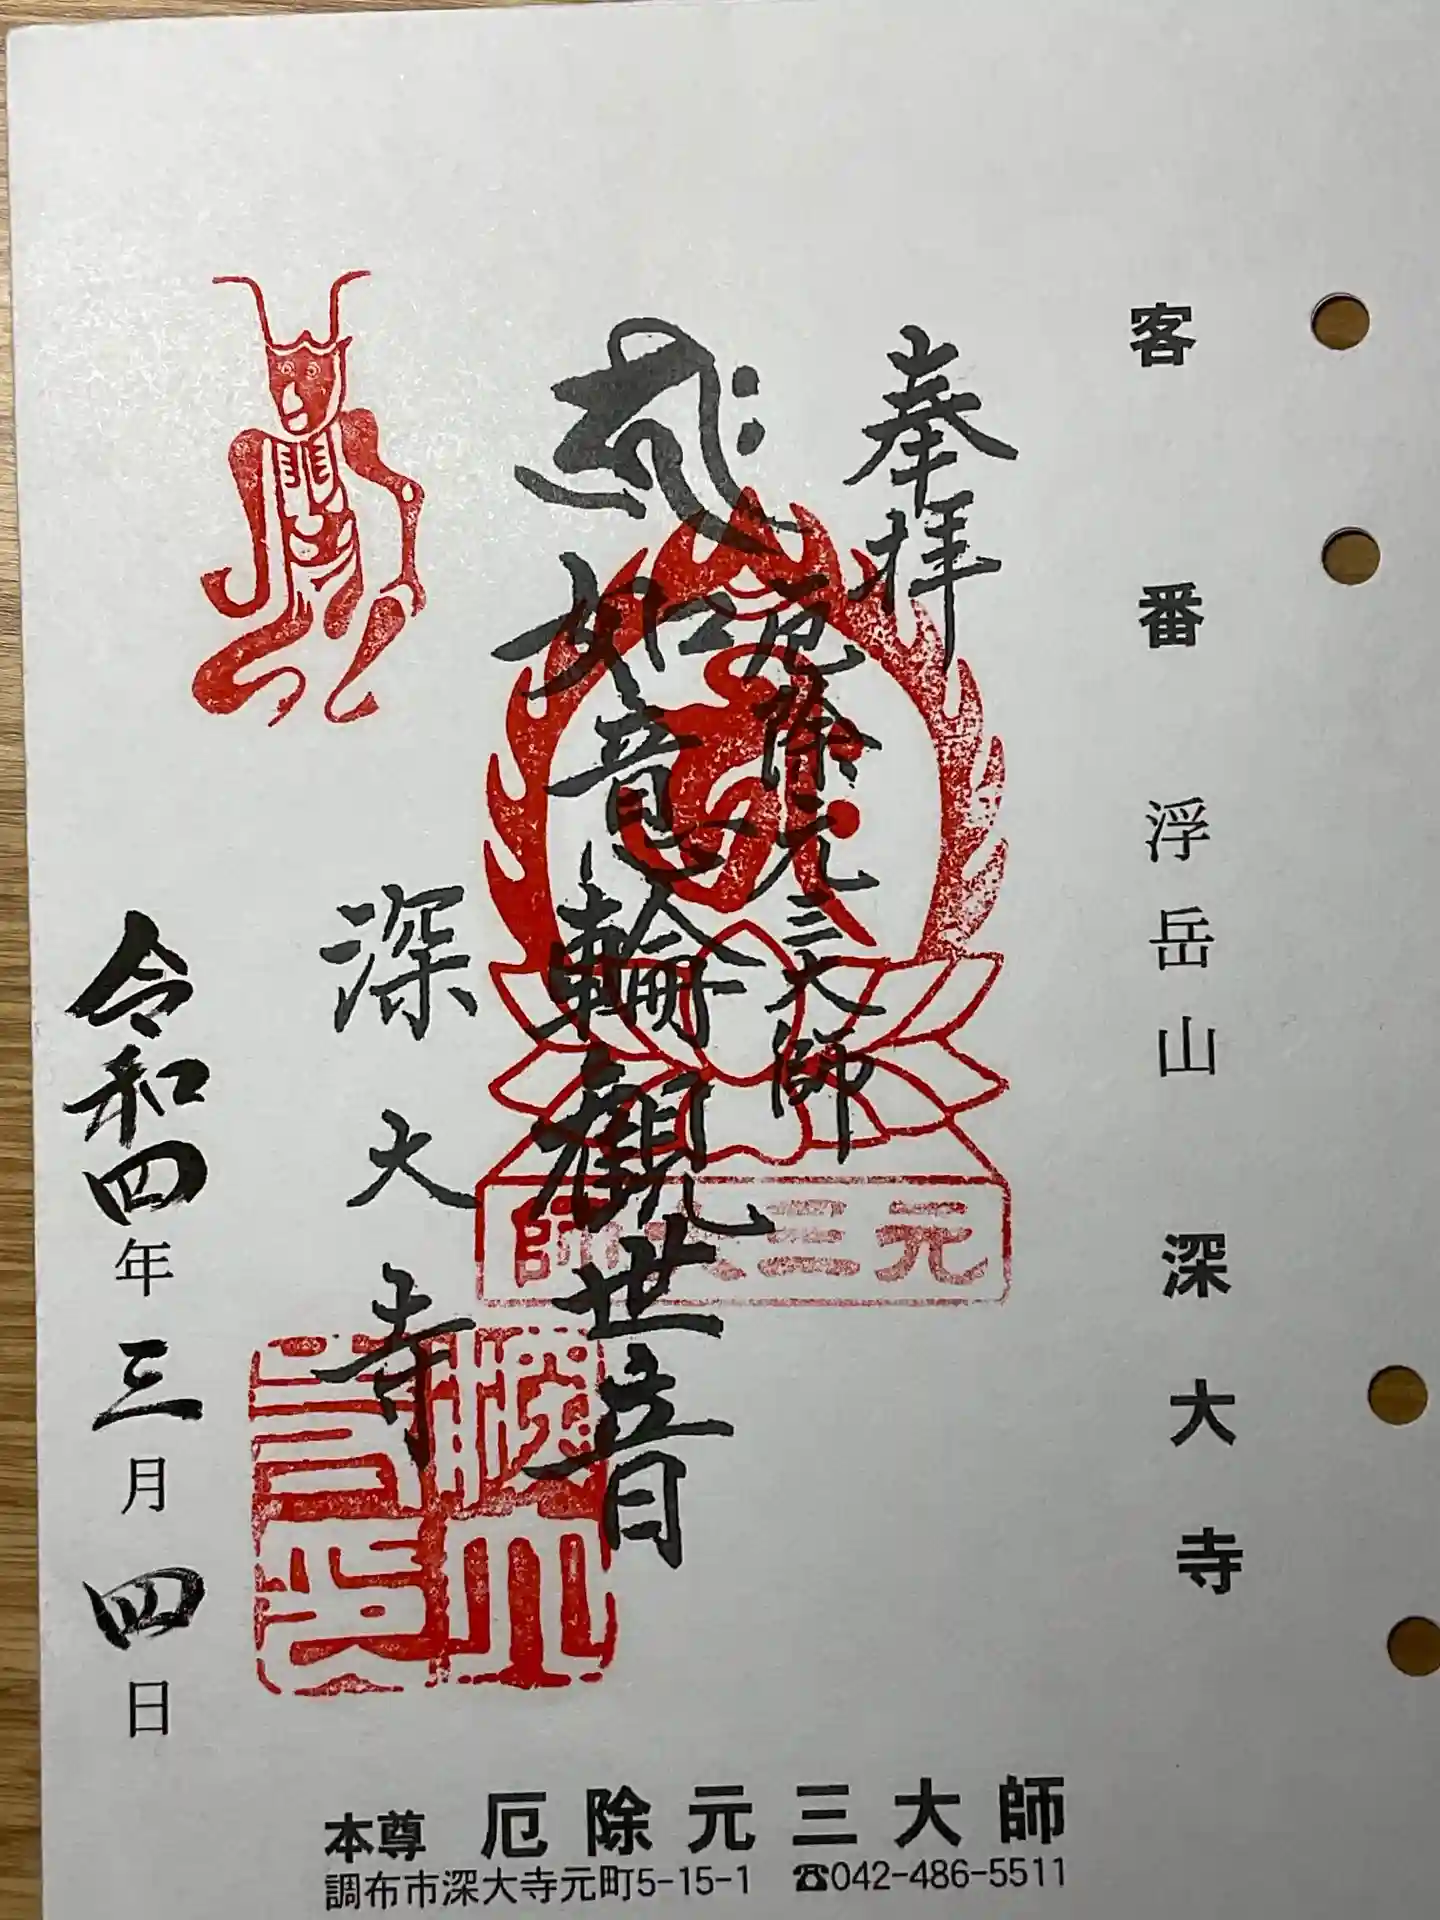 客番 浮岳山 深大寺
奉拝
厄除元三大師
如意輪観世音
元三大師
深大寺
令和四年三月四日
本尊 厄除元三大師
調布市深大寺元町5-15-1 ☎042-486-5511